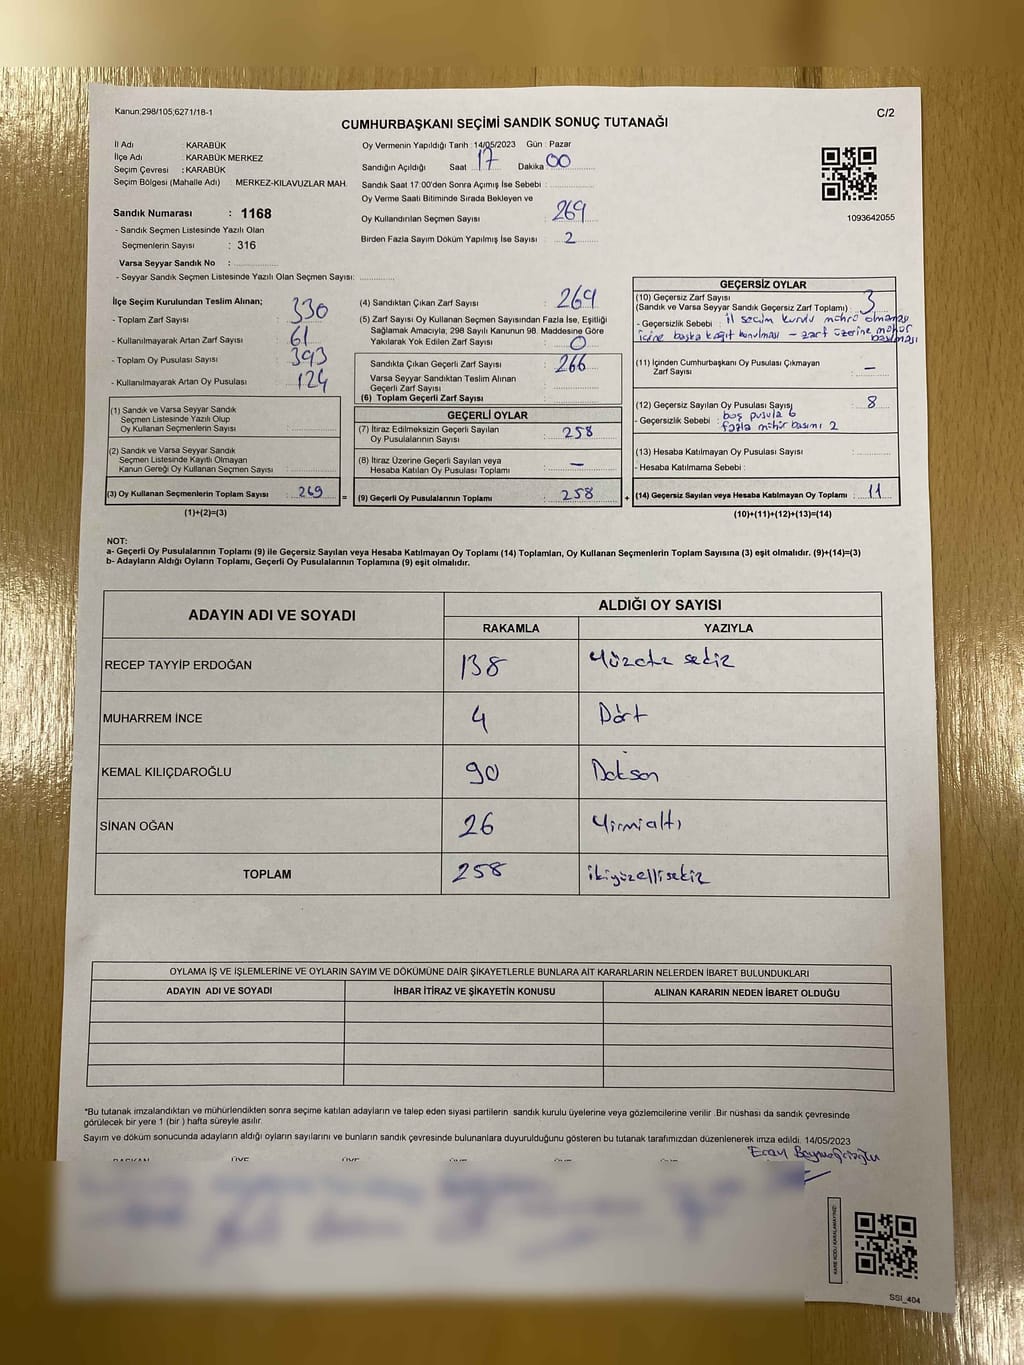 Kanun:298/105;6271/18-1
C/2
CUMHURBAŞKANI SEÇİMİ SANDIK SONUÇ TUTANAĞI
İl Adı : KARABÜK
İlçe Adı : KARABÜK MERKEZ
Seçim Çevresi : KARABÜK
Seçim Bölgesi (Mahalle Adı) : MERKEZ-KILAVUZLAR MAH.
Sandık Numarası : 1168
- Sandık Seçmen Listesinde Yazılı Olan
Seçmenlerin Sayısı : 316
Varsa Seyyar Sandık No :
- Seyyar Sandık Seçmen Listesinde Yazılı Olan Seçmen Sayısı:
Oy Vermenin Yapıldığı Tarih : 14/05/2023 Gün : Pazar
Sandığın Açıldığı Saat : 17 Dakika : 00
Sandık Saat 17:00'den Sonra Açımış İse Sebebi :
Oy Verme Saati Bitiminde Sırada Bekleyen ve
Oy Kullandırılan Seçmen Sayısı : 269
Birden Fazla Sayım Döküm Yapılmış İse Sayısı : 2
1093642055
İlçe Seçim Kurulundan Teslim Alınan;
- Toplam Zarf Sayısı : 330
- Kullanılmayarak Artan Zarf Sayısı : 61
- Toplam Oy Pusulası Sayısı : 393
- Kullanılmayarak Artan Oy Pusulası : 124
(1) Sandık ve Varsa Seyyar Sandık
Seçmen Listesinde Yazılı Olup
Oy Kullanan Seçmenlerin Sayısı :
(2) Sandık ve Varsa Seyyar Sandık
Seçmen Listesinde Kayıtlı Olmayan
Kanun Gereği Oy Kullanan Seçmen Sayısı :
(3) Oy Kullanan Seçmenlerin Toplam Sayısı : 269
(1)+(2)=(3)
(4) Sandıktan Çıkan Zarf Sayısı : 269
(5) Zarf Sayısı Oy Kullanan Seçmen Sayısından Fazla İse, Eşitliği
Sağlamak Amacıyla, 298 Sayılı Kanunun 98. Maddesine Göre
Yakılarak Yok Edilen Zarf Sayısı : 0
Sandıkta Çıkan Geçerli Zarf Sayısı : 266
Varsa Seyyar Sandıktan Teslim Alınan
Geçerli Zarf Sayısı :
(6) Toplam Geçerli Zarf Sayısı :
GEÇERLİ OYLAR
(7) İtiraz Edilmeksizin Geçerli Sayılan
Oy Pusulalarının Sayısı : 258
(8) İtiraz Üzerine Geçerli Sayılan veya
Hesaba Katılan Oy Pusulası Toplamı : —
(9) Geçerli Oy Pusulalarının Toplamı : 258
=
+
GEÇERSİZ OYLAR
(10) Geçersiz Zarf Sayısı
(Sandık ve Varsa Seyyar Sandık Geçersiz Zarf Toplamı) : 3
- Geçersizlik Sebebi : il seçim kurulu mührü olmaması
içine başka kağıt konulması – zarf üzerine mühür
basılması
(11) İçinden Cumhurbaşkanı Oy Pusulası Çıkmayan
Zarf Sayısı : —
(12) Geçersiz Sayılan Oy Pusulası Sayısı : 8
- Geçersizlik Sebebi : boş pusula 6
fazla mühür basımı 2
(13) Hesaba Katılmayan Oy Pusulası Sayısı :
- Hesaba Katılmama Sebebi :
(14) Geçersiz Sayılan veya Hesaba Katılmayan Oy Toplamı : 11
(10)+(11)+(12)+(13)=(14)
NOT:
a- Geçerli Oy Pusulalarının Toplamı (9) ile Geçersiz Sayılan veya Hesaba Katılmayan Oy Toplamı (14) Toplamları, Oy Kullanan Seçmenlerin Toplam Sayısına (3) eşit olmalıdır. (9)+(14)=(3)
b- Adayların Aldığı Oyların Toplamı, Geçerli Oy Pusulalarının Toplamına (9) eşit olmalıdır.
ADAYIN ADI VE SOYADI
ALDIĞI OY SAYISI
RAKAMLA YAZIYLA
RECEP TAYYİP ERDOĞAN 138 Yüzotuz sekiz
MUHARREM İNCE 4 Dört
KEMAL KILIÇDAROĞLU 90 Doksan
SİNAN OĞAN 26 Yirmialtı
TOPLAM 258 ikiyüzellisekiz
OYLAMA İŞ VE İŞLEMLERİNE VE OYLARIN SAYIM VE DÖKÜMÜNE DAİR ŞİKAYETLERLE BUNLARA AİT KARARLARIN NELERDEN İBARET BULUNDUKLARI
ADAYIN ADI VE SOYADI İHBAR İTİRAZ VE ŞİKAYETİN KONUSU ALINAN KARARIN NEDEN İBARET OLDUĞU
*Bu tutanak imzalandıktan ve mühürlendikten sonra seçime katılan adayların ve talep eden siyasi partilerin sandık kurulu üyelerine veya gözlemcilerine verilir .Bir nüshası da sandık çevresinde
görülecek bir yere 1 (bir ) hafta süreyle asılır.
Sayım ve döküm sonucunda adayların aldığı oyların sayılarını ve bunların sandık çevresinde bulunanlara duyurulduğunu gösteren bu tutanak tarafımızdan düzenlenerek imza edildi. 14/05/2023
BAŞKAN ÜYE ÜYE ÜYE ÜYE ÜYE
KARE KODU KARALAMAYINIZ!
SSI_404